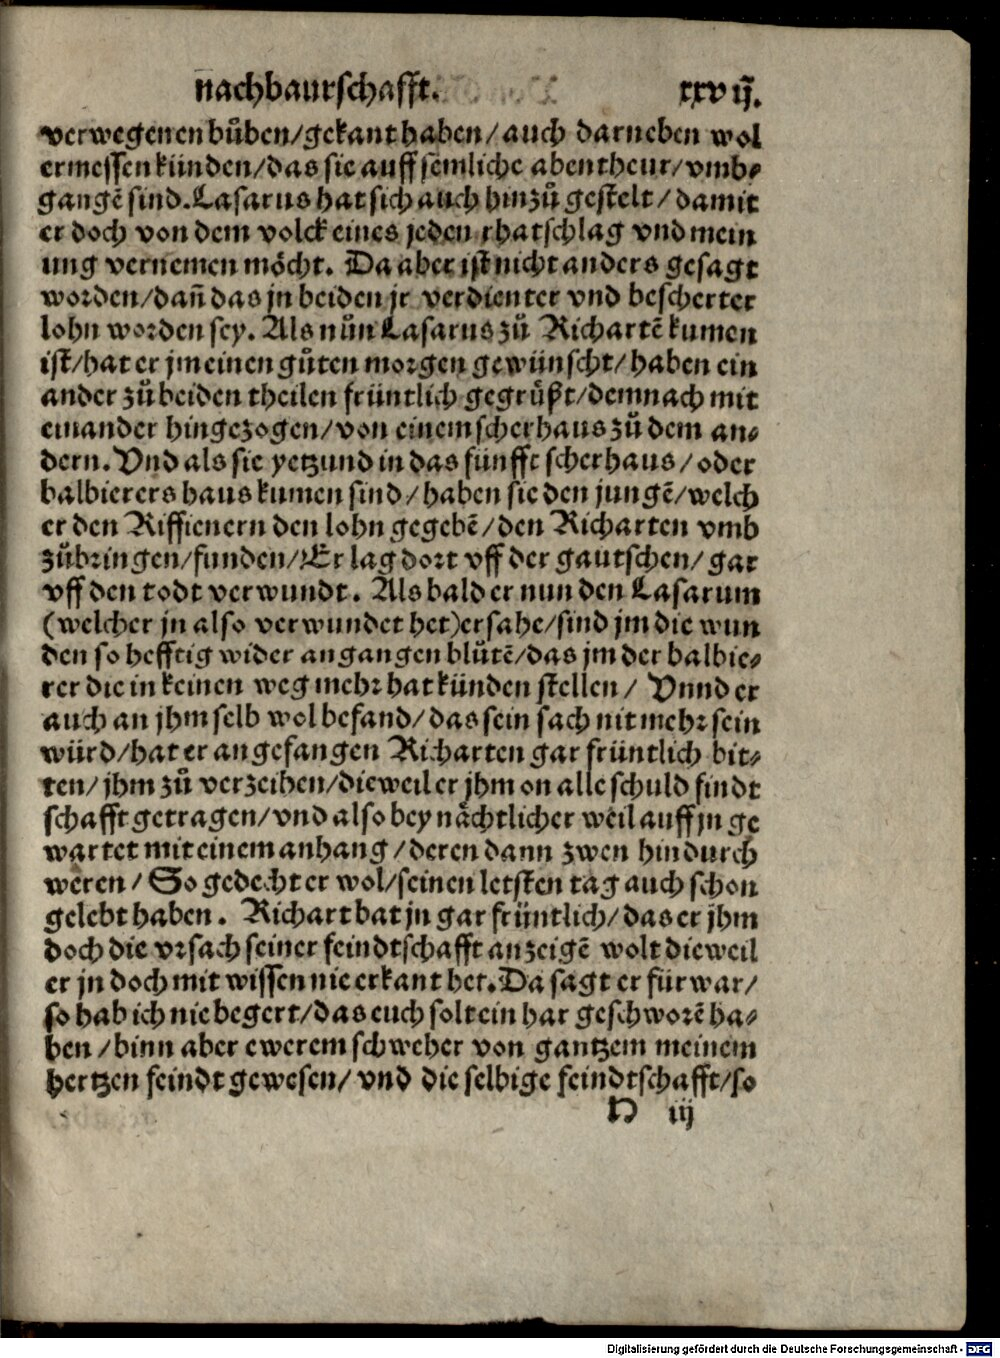 nachbaurschafft. xxvij.
verwegenen bůben/gekant haben/auch darneben wol
ermessen künden/das sie auff semliche abentheur/vmb⸗
gangẽ sind. Lasarus hat sich auch hinzů gestelt/damit
er doch von dem volck eines jeden rhatschlag vnd mein
ung vernemen möcht. Da aber ist nicht anders gesagt
worden/dañ das in beiden jr verdienter vnd bescherter
lohn worden sey. Als nůn Lasarus zů Richartẽ kumen
ist/hat er jm einen gůten morgen gewünscht/haben ein
ander zů beiden theilen früntlich gegrůßt/demnach mit
einander hingezogen/von einem scherhaus zů dem an⸗
dern. Vnd als sie yetzund in das fünfft scherhaus/oder
balbierers haus kumen sind/haben sie den jungẽ/welch
er den Riffienern den lohn gegebẽ/den Richarten vmb
zůbringen/funden/Er lag dort vff der gautschen/gar
vff den todt verwundt. Als bald er nun den Lasarum
(welcher jn also verwundet het)ersahe/sind jm die wun
den so hefftig wider angangen blůtẽ/das jm der balbie⸗
rer die in keinen weg mehr hat künden stellen/ Vnnd er
auch an jhm selb wol befand/das sein sach nit mehr sein
würd/hat er angefangen Richarten gar früntlich bit⸗
ten/jhm zů verzeihen/dieweil er jhm on alle schuld findt
schafft getragen/vnd also bey nächtlicher weil auff jn ge
wartet mit einem anhang/deren dann zwen hindurch
weren/So gedecht er wol/seinen letsten tag auch schon
gelebt haben. Richart bat jn gar früntlich/das er jhm
doch die vrsach seiner feindtschafft anzeigẽ wolt dieweil
er jn doch mit wissen nie erkant het. Da sagt er für war/
so hab ich nie begert/das euch solt ein har geschworẽ ha⸗
ben/binn aber ewerem schweher von gantzem meinem
hertzen feindt gewesen/vnd die selbige feindtschafft/so
D iij
Digitalisierung gefördert durch die Deutsche Forschungsgemeinschaft - DFG